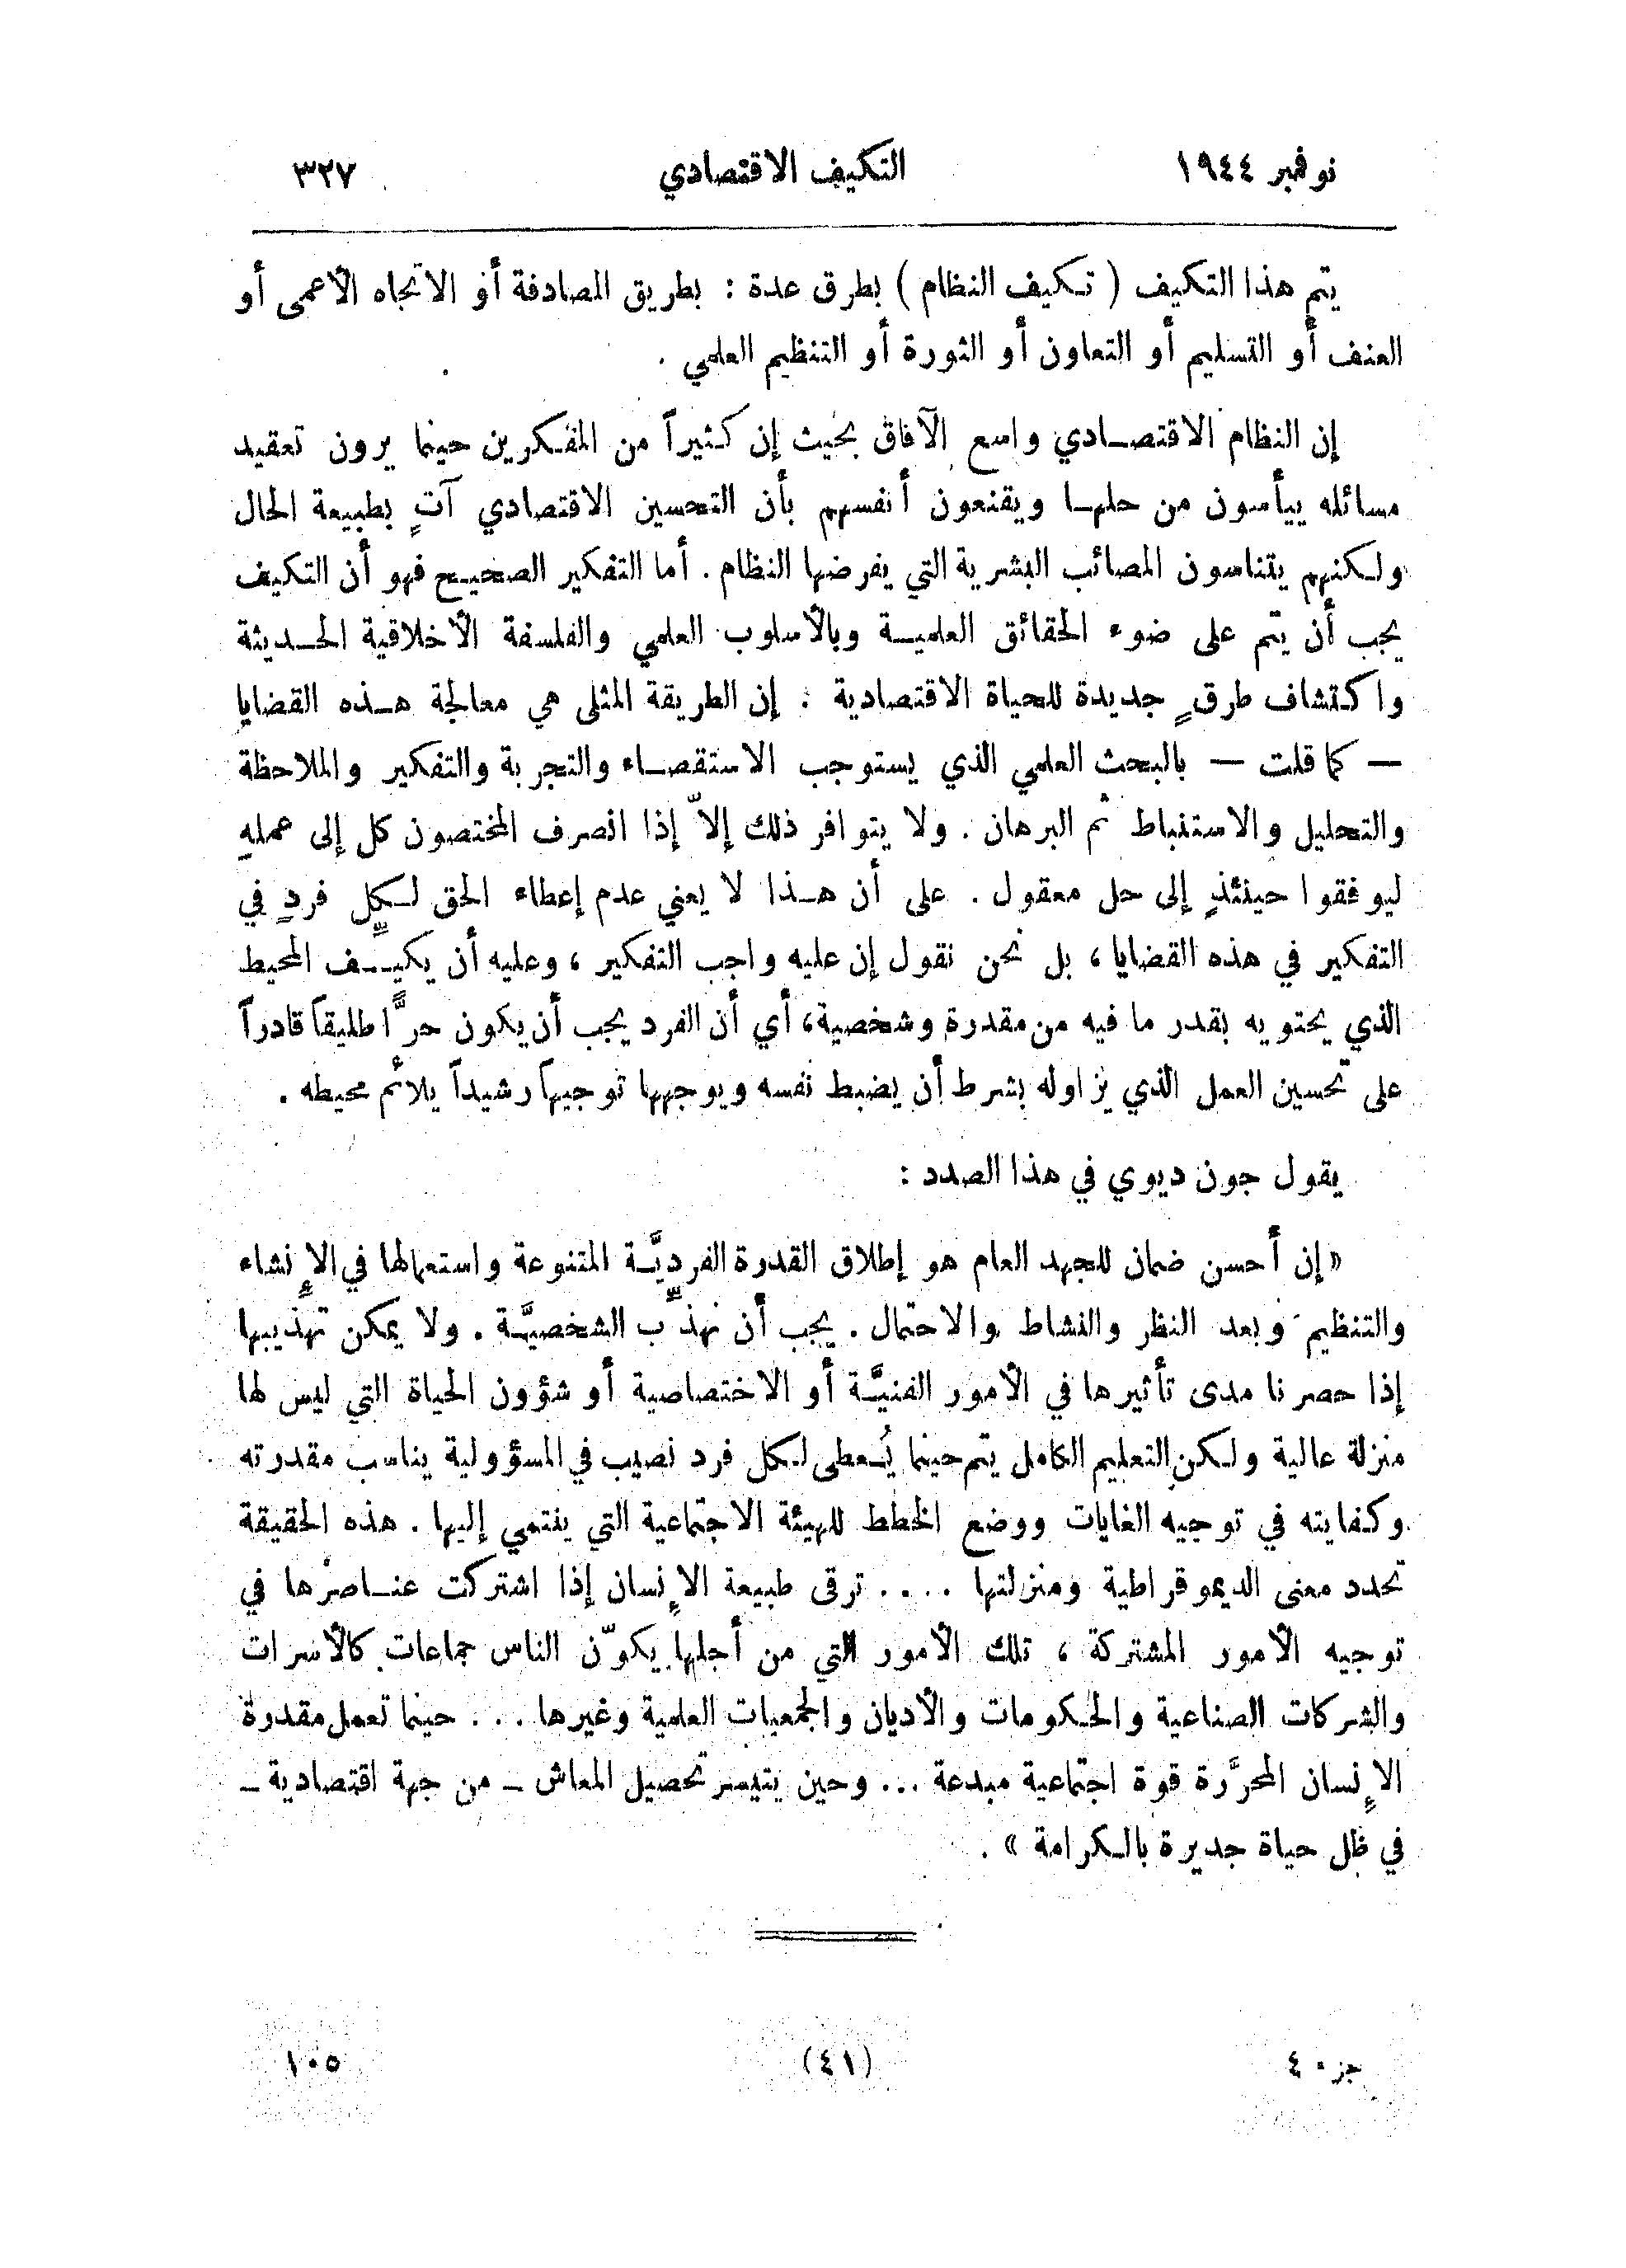 نوفمبر ١٩٤٤ التكيف الاقتصادي ٣٢٧
يتم هذا التكيف ( تكيف النظام ) بطرق عدة : بطريق المصادفة أو الاتجاه الأعمى أو
العنف أو التسليم أو التعاون أو الثورة أو التنظيم العلمي .
إن النظام الاقتصادي واسع الآفاق بحيث إن كثيراً من المفكرين حينما يرون تعقيد
مسائله ييأسون من حلها ويقنعون أنفسهم بأن التحسين الاقتصادي آتٍ بطبيعة الحال
ولكنهم يتناسون المصائب البشرية التي يفرضها النظام . أما التفكير الصحيح فهو أن التكيف
يجب أن يتم على ضوء الحقائق العلمية وبالأسلوب العلمي والفلسفة الأخلاقية الحديثة
واكتشاف طرقٍ جديدة للحياة الاقتصادية . إن الطريقة المثلى هي معالجة هذه القضايا
— كما قلت — بالبحث العلمي الذي يستوجب الاستقصاء والتجربة والتفكير والملاحظة
والتحليل والاستنباط ثم البرهان . ولا يتوافر ذلك إلاّ إذا انصرف المختصون كل إلى عملهِ
ليوفقوا حينئذٍ إلى حل معقول . على أن هذا لا يعني عدم إعطاء الحق لكل فردٍ في
التفكير في هذه القضايا ، بل نحن نقول إن عليه واجب التفكير ، وعليه أن يكيِّف المحيط
الذي يحتويه بقدر ما فيه من مقدرة وشخصية ، أي أن الفرد يجب أن يكون حرًّا طليقاً قادراً
على تحسين العمل الذي يزاوله بشرط أن يضبط نفسه ويوجهها توجيهاً رشيداً يلائم محيطه .
يقول جون ديوي في هذا الصدد :
« إن أحسن ضمان للجهد العام هو إطلاق القدرة الفرديَّة المتنوعة واستعمالها في الإنشاء
والتنظيم وبعد النظر والنشاط والاحتمال . يجب أن نهذِّب الشخصيَّة . ولا يمكن تهذيبها
إذا حصرنا مدى تأثيرها في الأمور الفنيَّة أو الاختصاصية أو شؤون الحياة التي ليس لها
منزلة عالية ولكن التعليم الكامل يتم حينما يُعطى لكل فرد نصيب في المسؤولية يناسب مقدرته
وكفايته في توجيه الغايات ووضع الخطط للهيئة الاجتماعية التي ينتمي إليها . هذه الحقيقة
تحدد معنى الديموقراطية ومنزلتها .... ترقى طبيعة الإنسان إذا اشتركت عناصرها في
توجيه الأمور المشتركة ، تلك الأمور التي من أجلها يكوّن الناس جماعات كالأسرات
والشركات الصناعية والحكومات والأديان والجمعيات العلمية وغيرها ... حينما تعمل مقدرة
الإنسان المحرَّرة قوة اجتماعية مبدعة ... وحين يتيسر تحصيل المعاش ـ من جهة اقتصادية ـ
في ظل حياة جديرة بالكرامة » .
جزء ٤ (٤١) ١٠٥